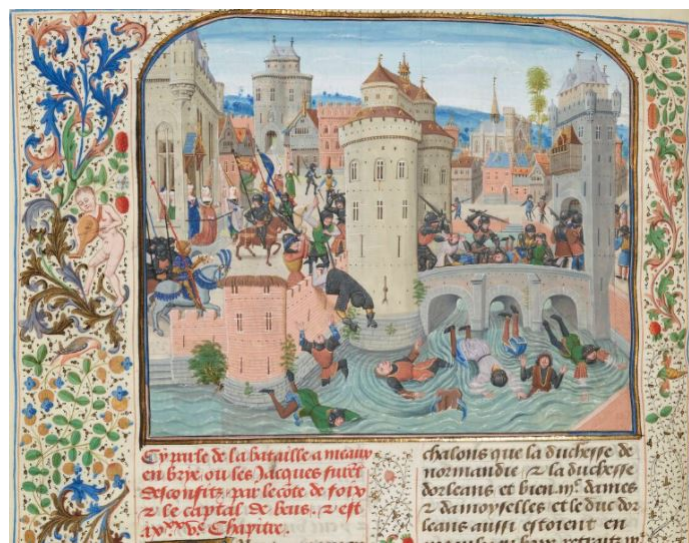 Cy parle de la bataille a meaux
en brye. ou les Jacques furēt
desconfits par le cōte de foix
⁊ le captal de beus. ⁊ est
Chapitre.
chalons que la duchesse de
normandie ⁊ la duchesse
dorleans et bien .iijᶜ. dames
⁊ damoyselles et le duc dor
leans aussi estoient en